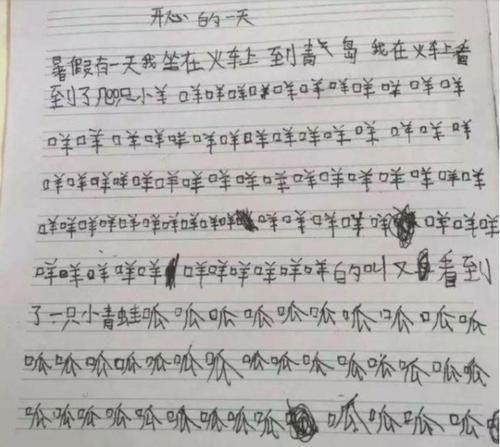 开心的一天
暑假有一天我坐在火车上到青岛我在火车上看
到了几只小羊咩咩咩咩咩咩咩咩咩咩咩咩
咩咩咩咩咩咩咩咩咩咩咩咩咩咩咩咩咩
咩咩咩咩咩咩咩咩咩咩咩咩咩咩咩咩咩咩
咩咩咩咩咩咩咩咩咩咩咩咩咩咩咩咩咩咩
咩咩咩咩咩咩咩咩咩咩咩的叫又看到
了一只小青蛙呱呱呱呱呱呱呱呱呱呱呱
呱呱呱呱呱呱呱呱呱呱呱呱呱呱呱
呱呱呱呱呱呱呱呱呱呱呱呱呱呱